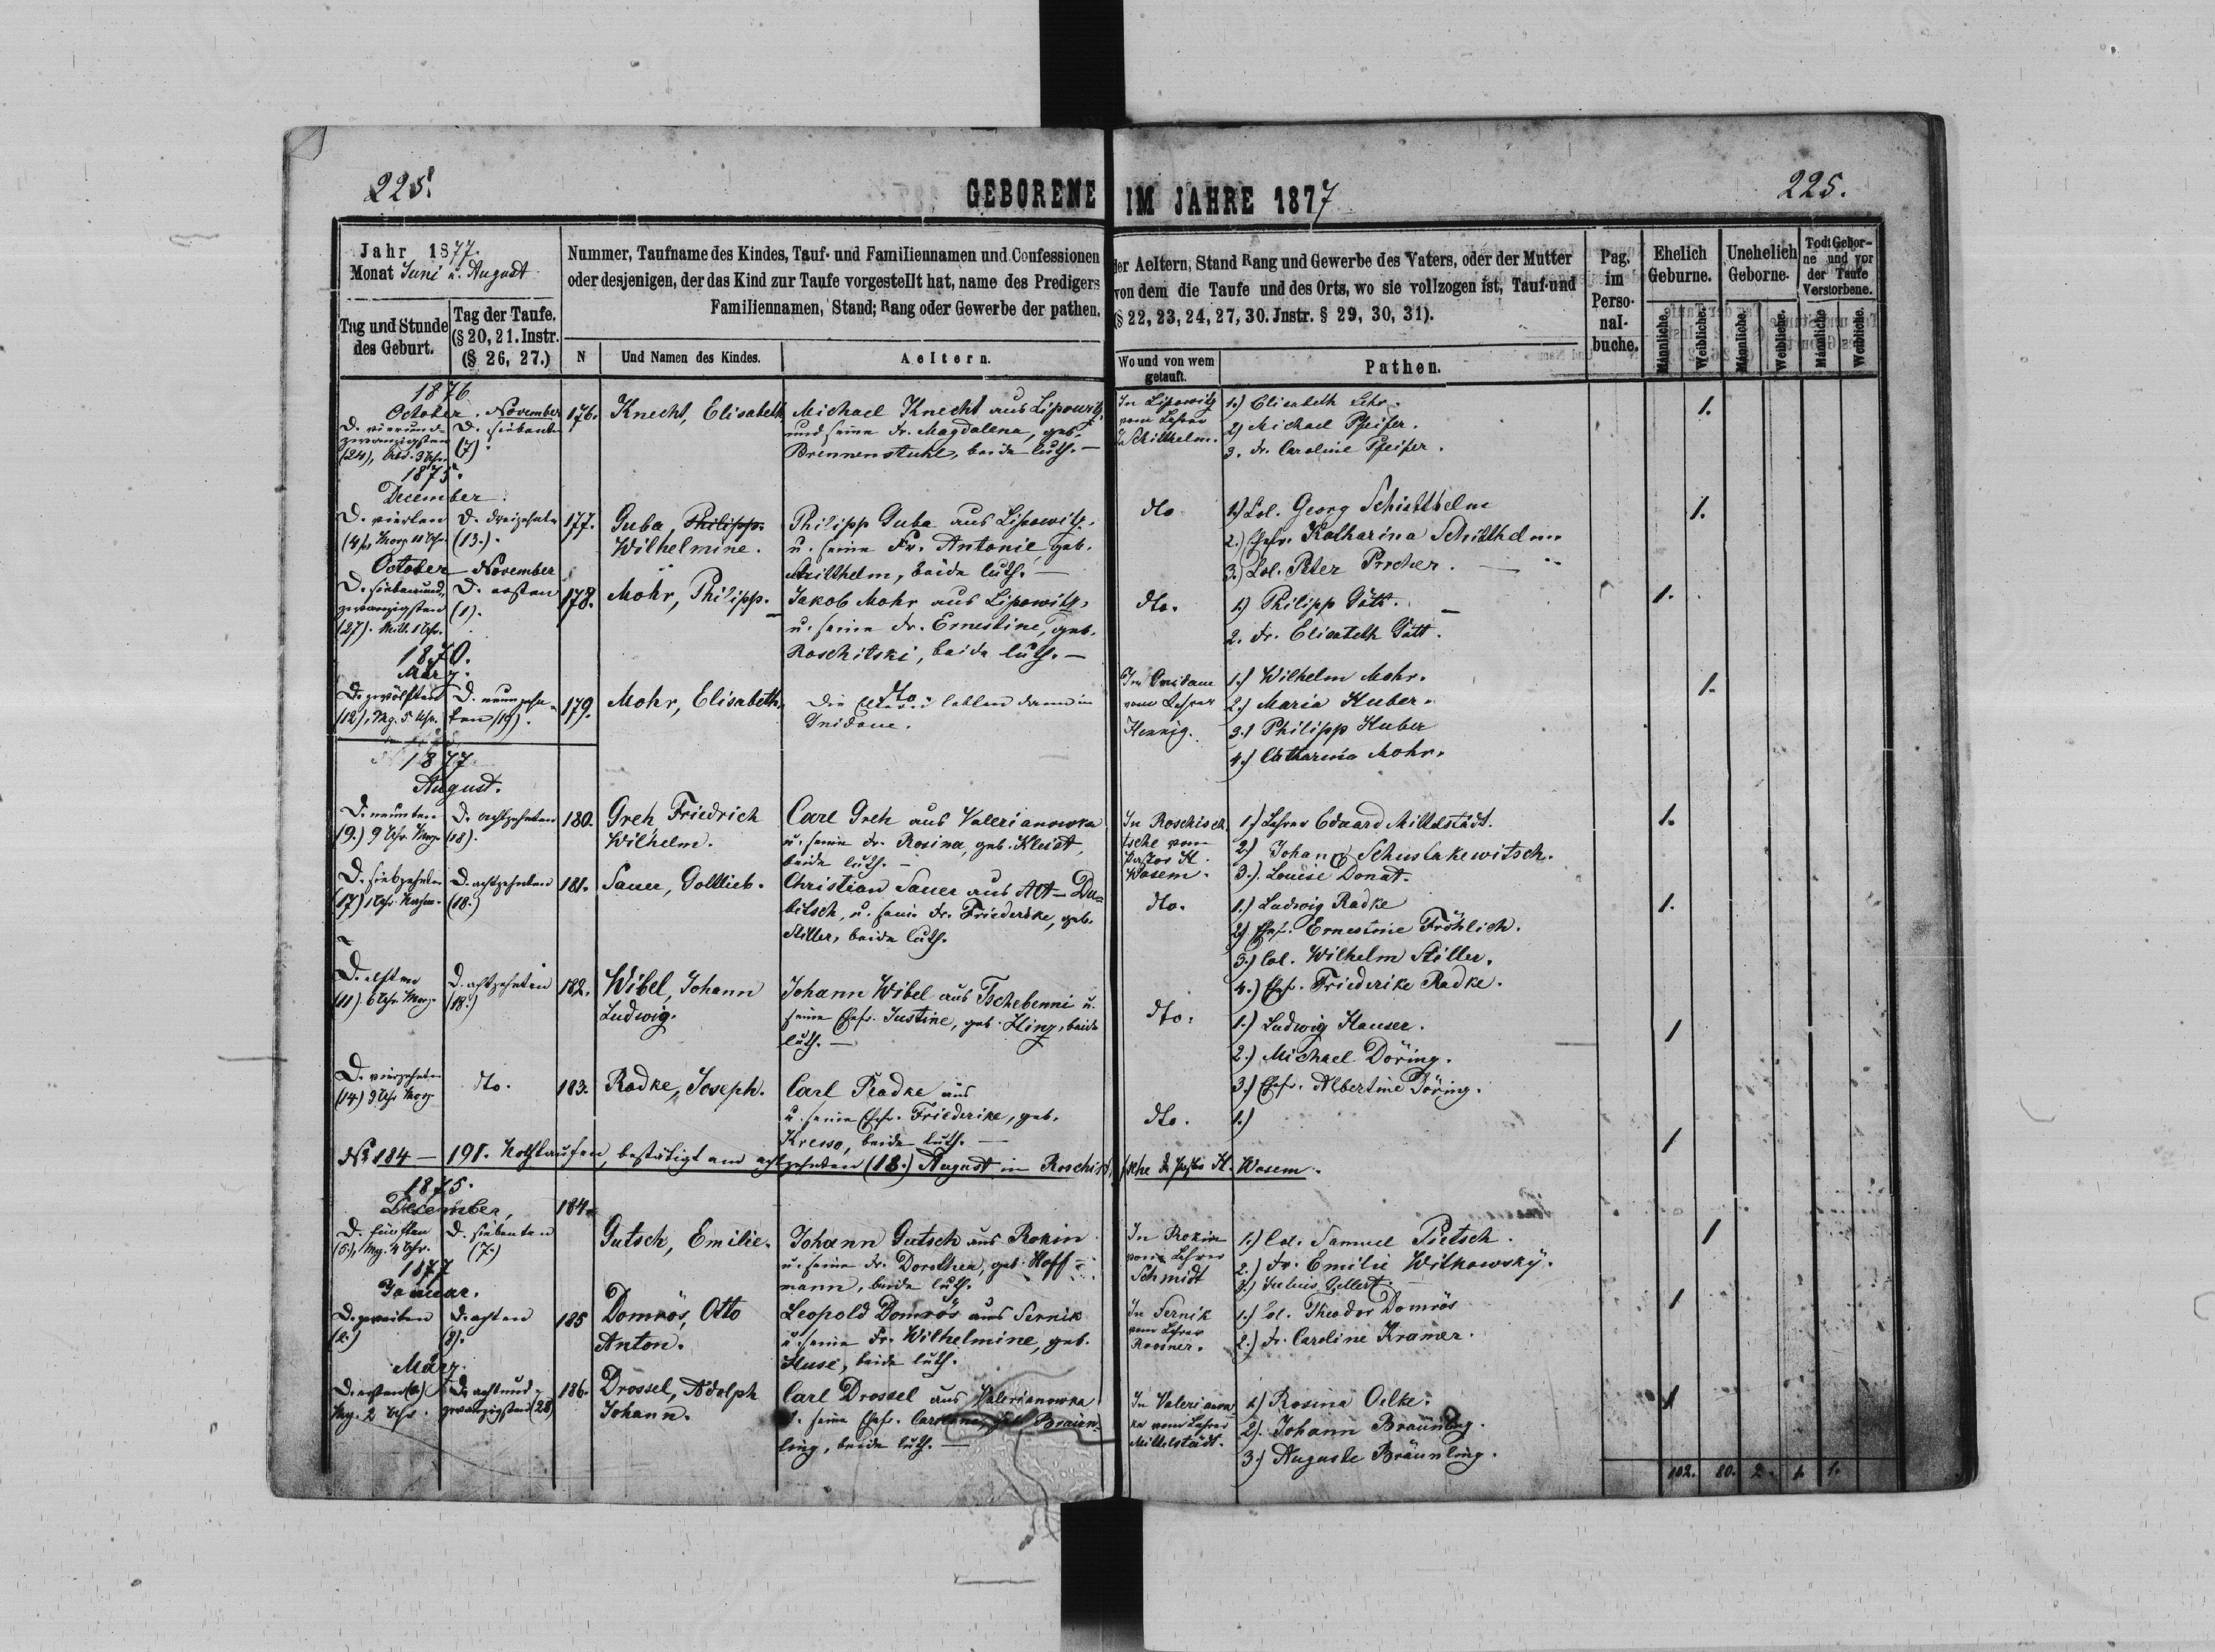 225.
GEBORENE IM JAHRE 1877
225.
Jahr 1877.
Monat Juni u. August
Nummer, Taufname des Kindes, Tauf- und Familiennamen und Confessionen
oder desjenigen, der das Kind zur Taufe vorgestellt hat, name des Predigers
Familiennamen, Stand; Rang oder Gewerbe der pathen.
der Aeltern, Stand Rang und Gewerbe des Vaters, oder der Mutter
von dem die Taufe und des Orts, wo sie vollzogen ist, Tauf-und
(§ 22, 23, 24, 27, 30. Jnstr. § 29, 30, 31).
Pag. im Perso- nal- buche.
Ehelich Geburne.
Unehelich Geborne.
Todt Gebor- ne und vor der Taufe Verstorbene.
Tag und Stunde des Geburt.
Tag der Taufe. (§ 20, 21. Instr. (§ 26, 27.)
N
Und Namen des Kindes.
Aeltern.
Wo und von wem getauft.
Pathen.
Männliche.
Weibliche.
Männliche.
Weibliche.
Männliche
Weibliche.
1876
October. November
D. vierund- D. siebente 176. Knecht, Elisabeth Michael Knecht aus Lipowitz, In Lipowitz 1.) Elisabeth Lehr. 1.
zwanzigsten (7) und seine Fr. Magdalena, geb. vom Lehrer 2) Michael Pfeifer.
(24), Abd. 3 Uhr. Brennenstuhl, beide luth. – Schilthelm. 3. Fr. Caroline Pfeifer.
1875.
December.
D. vierten D. dreizehnte 177. Guba, Philipp. Philipp Guba aus Lipowitz, dto 1.) Col. Georg Schilthelm 1.
(4) Morg. 11 Uhr. (13.). Wilhelmine. u. seine Fr. Antonie geb. 2.) Ehefr. Katharina Schilthelm
Schilthelm, beide luth. – 3.) Col. Peter Pircher.
October – November
D. siebenund- D. ersten 178. Mohr, Philipp. Jakob Mohr aus Lipowitz, dto. 1.) Philipp Gått. 1.
zwanzigsten (1). u. seine Fr. Ernestine, geb. 2. Fr. Elisabeth Gått.
(27). Mitt. 1 Uhr. Roschitski, beide luth. –
1870.
März.
D. zwölften D. neunzehn- 179. Mohr, Elisabeth. dto. 1.) Wilhelm Mohr. 1.
(12), Mg. 5 Uhr. ten (19). Die lebten dann in Gnidawe. vom Lehrer 2.) Maria Huber.
Hennig. 3.) Philipp Huber
4.) Catharina Mohr.
1877
August.
D. neunten D. achtzehnten 180. Greh Friedrich Carl Greh aus Valerianowka In Roschisch- 1.) Lehrer Eduard Mittelstädt. 1.
(9.) 9 Uhr Morg. (18). Wilhelm. u. seine Fr. Rosina, geb. Kleist, tsche vom 2) Johann Schustakewitsch.
beide luth. – Pastor H. Wasem. 3.). Louise Donat.
D. siebzehnten D. achtzehnten 181. Sauer, Gottlieb. Christian Sauer aus Alt-Du- dto. 1.) Ludwig Radke 1.
(17) 1 Uhr Nachm. (18.) bitsch, u. seine Fr. Friederike, geb. 2) Ehefr. Ernestine Fröhlich.
Stiller, beide luth. 3.) Col. Wilhelm Stiller.
4.) Ehefr. Friederike Radke.
D. elften D. achtzehnten 182. Wibel, Johann Johann Wibel aus Tschebenni u. dto. 1.) Ludwig Hauser. 1
(11). 6 Uhr Morg. (18.) Ludwig. seine Ehefr. Justine, geb. Hinz, beide 2.) Michael Döring.
luth. – 3.) Ehefr. Albertine Döring.
D. vierzehnten dto. 183. Radke, Joseph. Carl Radke aus dto. 1.) 1
(14) 9 Uhr Morg. u. seine Ehefr. Friederike, geb.
Kresso, beide luth. –
No 184 – 191. Nothtaufen, bestätigt am achtzehnten (18.) August in Roschischtsche d. Pastor H. Wasem.
1875.
December, 184.
D. fünften D. siebenten Gutsch, Emilie. Johann Gutsch aus Rokin In Rokin 1.) Col. Samuel Pietsch. 1
(5.), Mg. 4 Uhr. (7.) u. seine Fr. Dorothea, geb. Hoff- vom Lehrer 2.) Fr. Emilie Witkowsky.
mann, beide luth. Schmidt 3.) Julius Gellert.
1877
Januar.
D. zweiten D. achten 185 Domrös, Otto Leopold Domrös aus Sernik In Sernik 1.) Col. Theodor Domrös 1
(2.) (8). Anton. u. seine Fr. Wilhelmine, geb. vom Lehrer 2.) Fr. Caroline Kramer.
Huse, beide luth. Rossner.
März.
D. ersten (1.) D. achtund- 186. Drossel, Adolph Carl Drossel aus Valerianowka In Valerianow- 1.) Rosina Oelke. 1
Mg. 2 Uhr. zwanzigsten (28) Johann. u. seine Ehefr. Caroline, geb. Bräun- ka vom Lehrer 2). Johann Bräunling.
ling, beide luth. – Mittelstädt. 3.) Auguste Bräunling.
102. 80. 2. 1. 1.